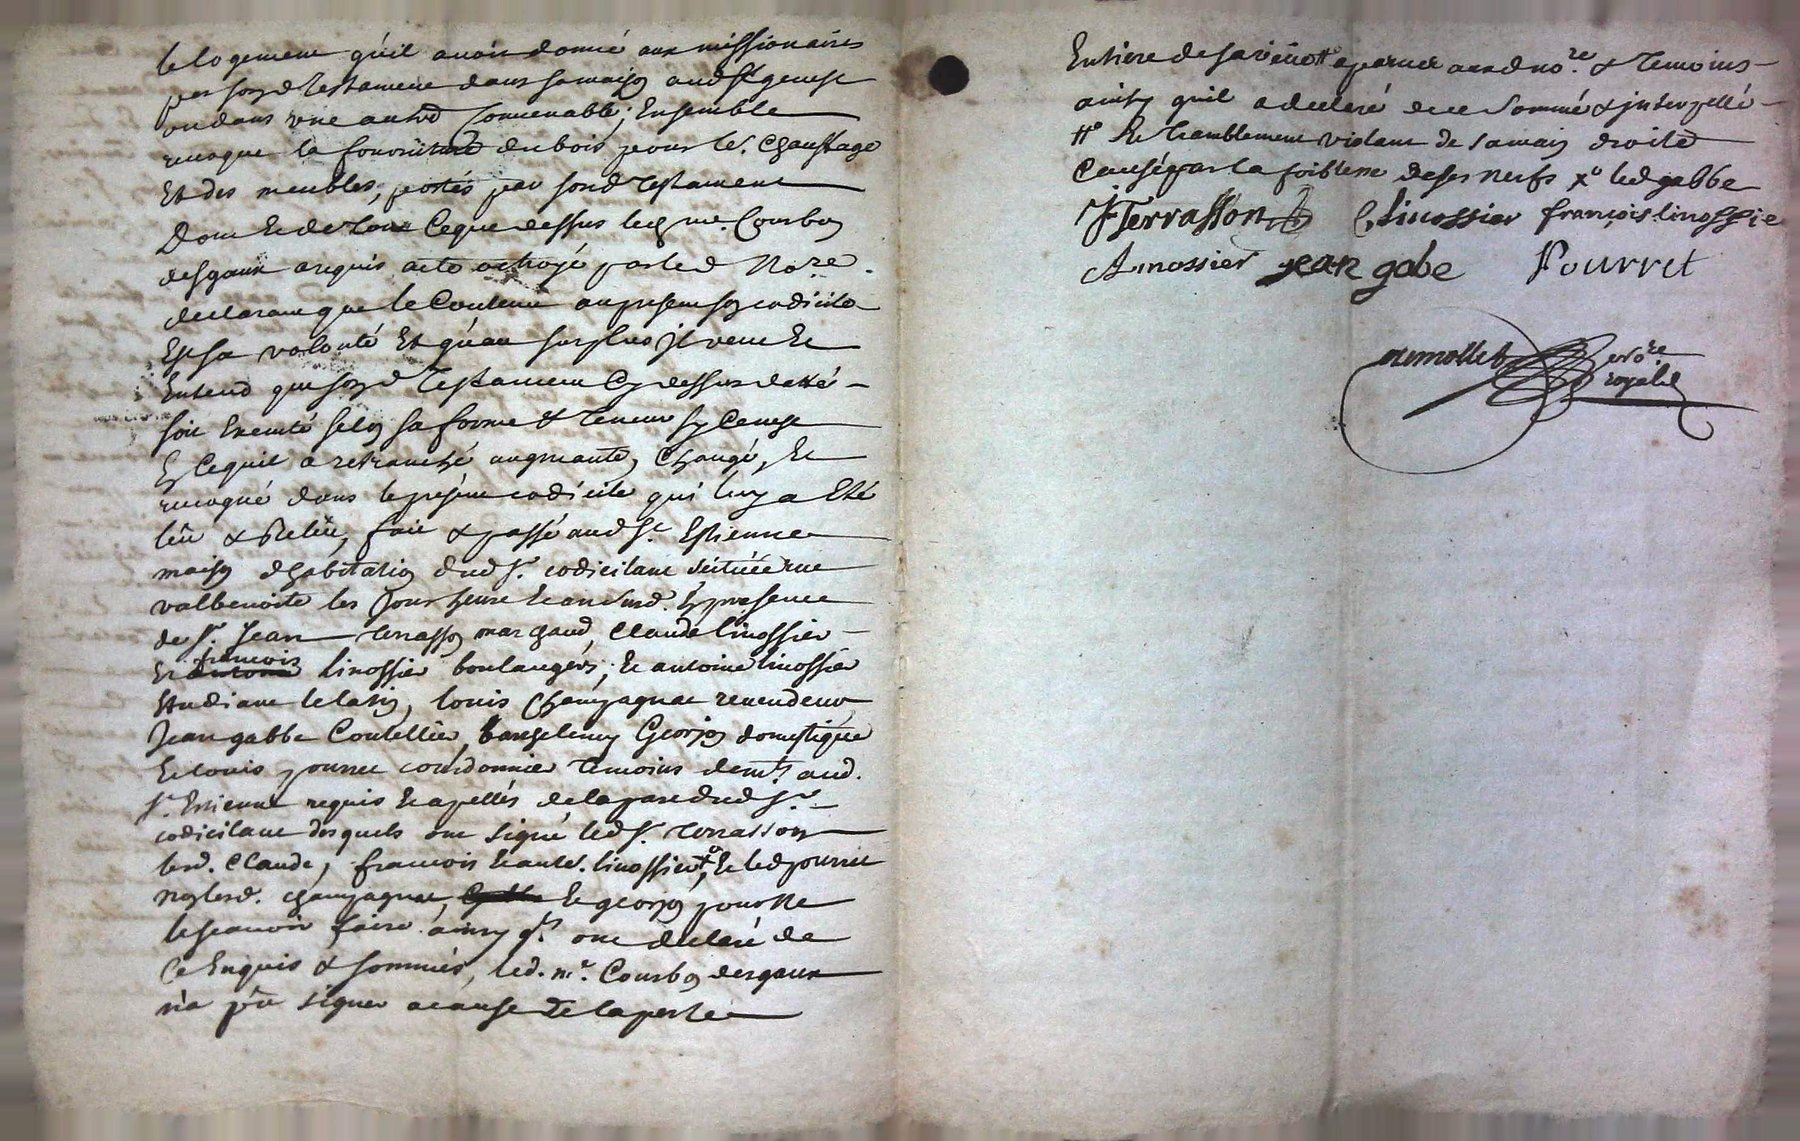 le logement qu'il avoit donné aux missionaires
par sond testament dans sa maison aud St genest
ou dans une autre Convenable; Ensemble
revoque la fourniture du bois pour le Chauffage
Et des meubles, portés par sond testament
Dont Et de tout Ce que dessus led mre. Courbon
desgaux a requis acte octroyé par led Nore.
declarant que le Contenu au present son codicile
Est sa volonté Et qu'au surplus il veut Et
Entend que sond Testament Cy dessus datté
soit Executé selon sa forme & teneur sy Ce n'est
En Ce qu'il a retranché augmenté, Changé, Et
revoqué dans le présent codicile qui luy a Eté
lëu & Relëu, fait & passé aud St. Estienne
maison d'habitation dud sr. codicilant scituée rue
valbenoite les Jour heure Et an susd. En presence
de sr. Jean terrasson marchand, Claude linossier
Et françois linossier boulangers, Et antoine linossier
Etudiant le latin, louis Champagnac revendeur
Jean gabbe Coutellier, barthelemy Georjon domestique
Et louis pourret cordonnier temoins demts aud.
St. Estienne requis Et apellés de la part dud sr.
codicilant desquels ont signé led sr. terrasson
lesd. Claude, françois Et ante. linossier xo, Et led pourret
non lesd. champagnac, Et georjon pour ne
le scavoir faire ainsy qu'ils ont declaré de
Ce Enquis & sommés, led. mre. Courbon desgaux
n'a pû signer a cause de la perte
Entiere de sa veüe #o a parceu aud nore & temoins
ainsy qu'il a declaré de ce sommé & interpellé
#o Le tramblement violant de sa main droite
Causé par la foiblesse de ses nerfs xo led gabbe
J Terrasson C, linossier françois linossie
A linossier jean gabe Pourret
nore
royal